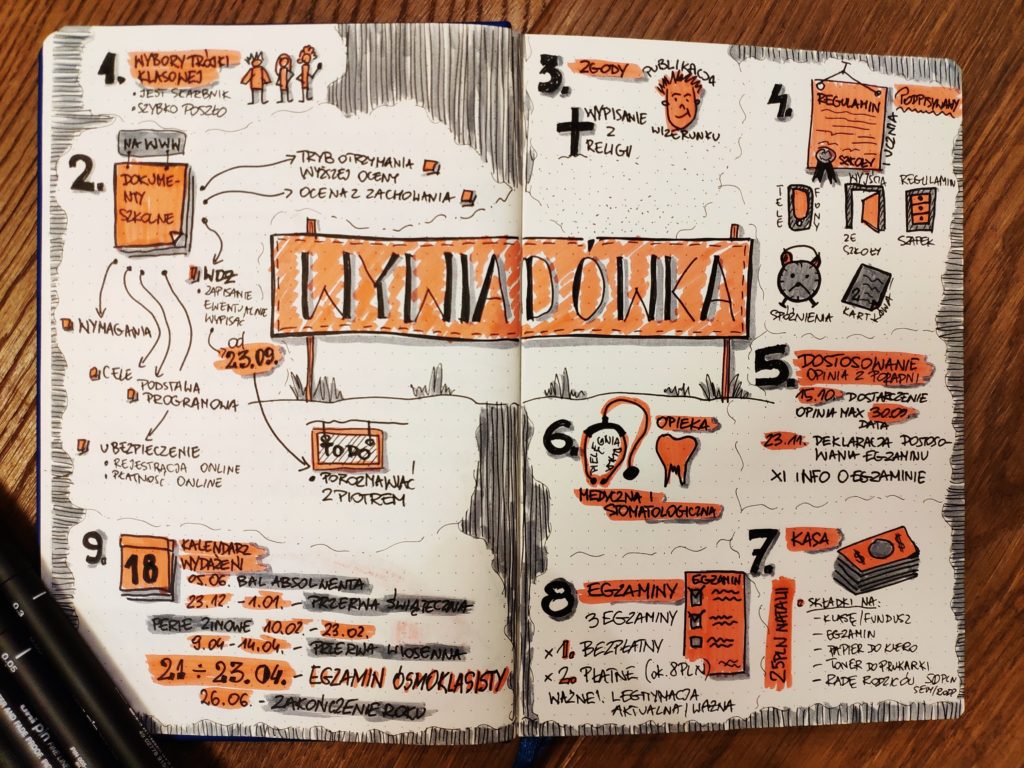 WYWIADÓWKA
1.
WYBORY TRÓJKI
KLASOWEJ
• JEST SKARBNIK
• SZYBKO POSZŁO
2.
NA WWW
DOKUME-
NTY
SZKOLNE
TRYB OTRZYMANIA
WYŻSZEJ OCENY
OCENA Z ZACHOWANIA
WDŻ
• ZAPISANIE
EWENTUALNIE
WYPISAĆ
od
23.09.
WYMAGANIA
CELE
PODSTAWA
PROGRAMOWA
UBEZPIECZENIE
• REJESTRACJA ONLINE
• PŁATNOŚĆ ONLINE
TO DO
• POROZMAWIAĆ
Z PIOTREM
3.
ZGODY
PUBLIKACJA
WIZERUNKU
WYPISANIE
Z
RELIGII
4.
REGULAMIN
SZKOŁY
UCZNIA
PODPISUJEMY
TELE
FONY
WYJŚCIA
ZE
SZKOŁY
REGULAMIN
SZAFEK
SPÓŹNIENIA
KARTKÓWKA
5.
DOSTOSOWANIE
OPINIA Z PORADNI
15.10. DOSTARCZENIE
OPINIA MAX 30.09.
DATA
23.11. DEKLARACJA DOSTOSO-
WANIA EGZAMINU
XI INFO O EGZAMINIE
6.
OPIEKA
MEDYCZNA I
STOMATOLOGICZNA
7.
KASA
23PLN NATALII
• SKŁADKI NA:
- KLASĘ/FUNDUSZ
- EGZAMIN
- PAPIER DO KSERO
- TONER DO DRUKARKI
- RADĘ RODZICÓW 50PLN
8
EGZAMINY
EGZAMIN
3 EGZAMINY
× 1. BEZPŁATNY
× 2. PŁATNE (ok. 8PLN)
WAŻNE! LEGITYMACJA
AKTUALNA I WAŻNA
9.
18
KALENDARZ
WYDAŻENI
05.06. BAL ABSOLWENTA
23.12. - 1.01. - PRZERWA ŚWIĄTECZNA
FERIE ZIMOWE 10.02. - 23.02.
9.04 - 14.04. - PRZERWA WIOSENNA
21 ÷ 23.04. - EGZAMIN ÓSMOKLASISTY
26.06. - ZAKOŃCZENIE ROKU
0.3
0.05
uni pin